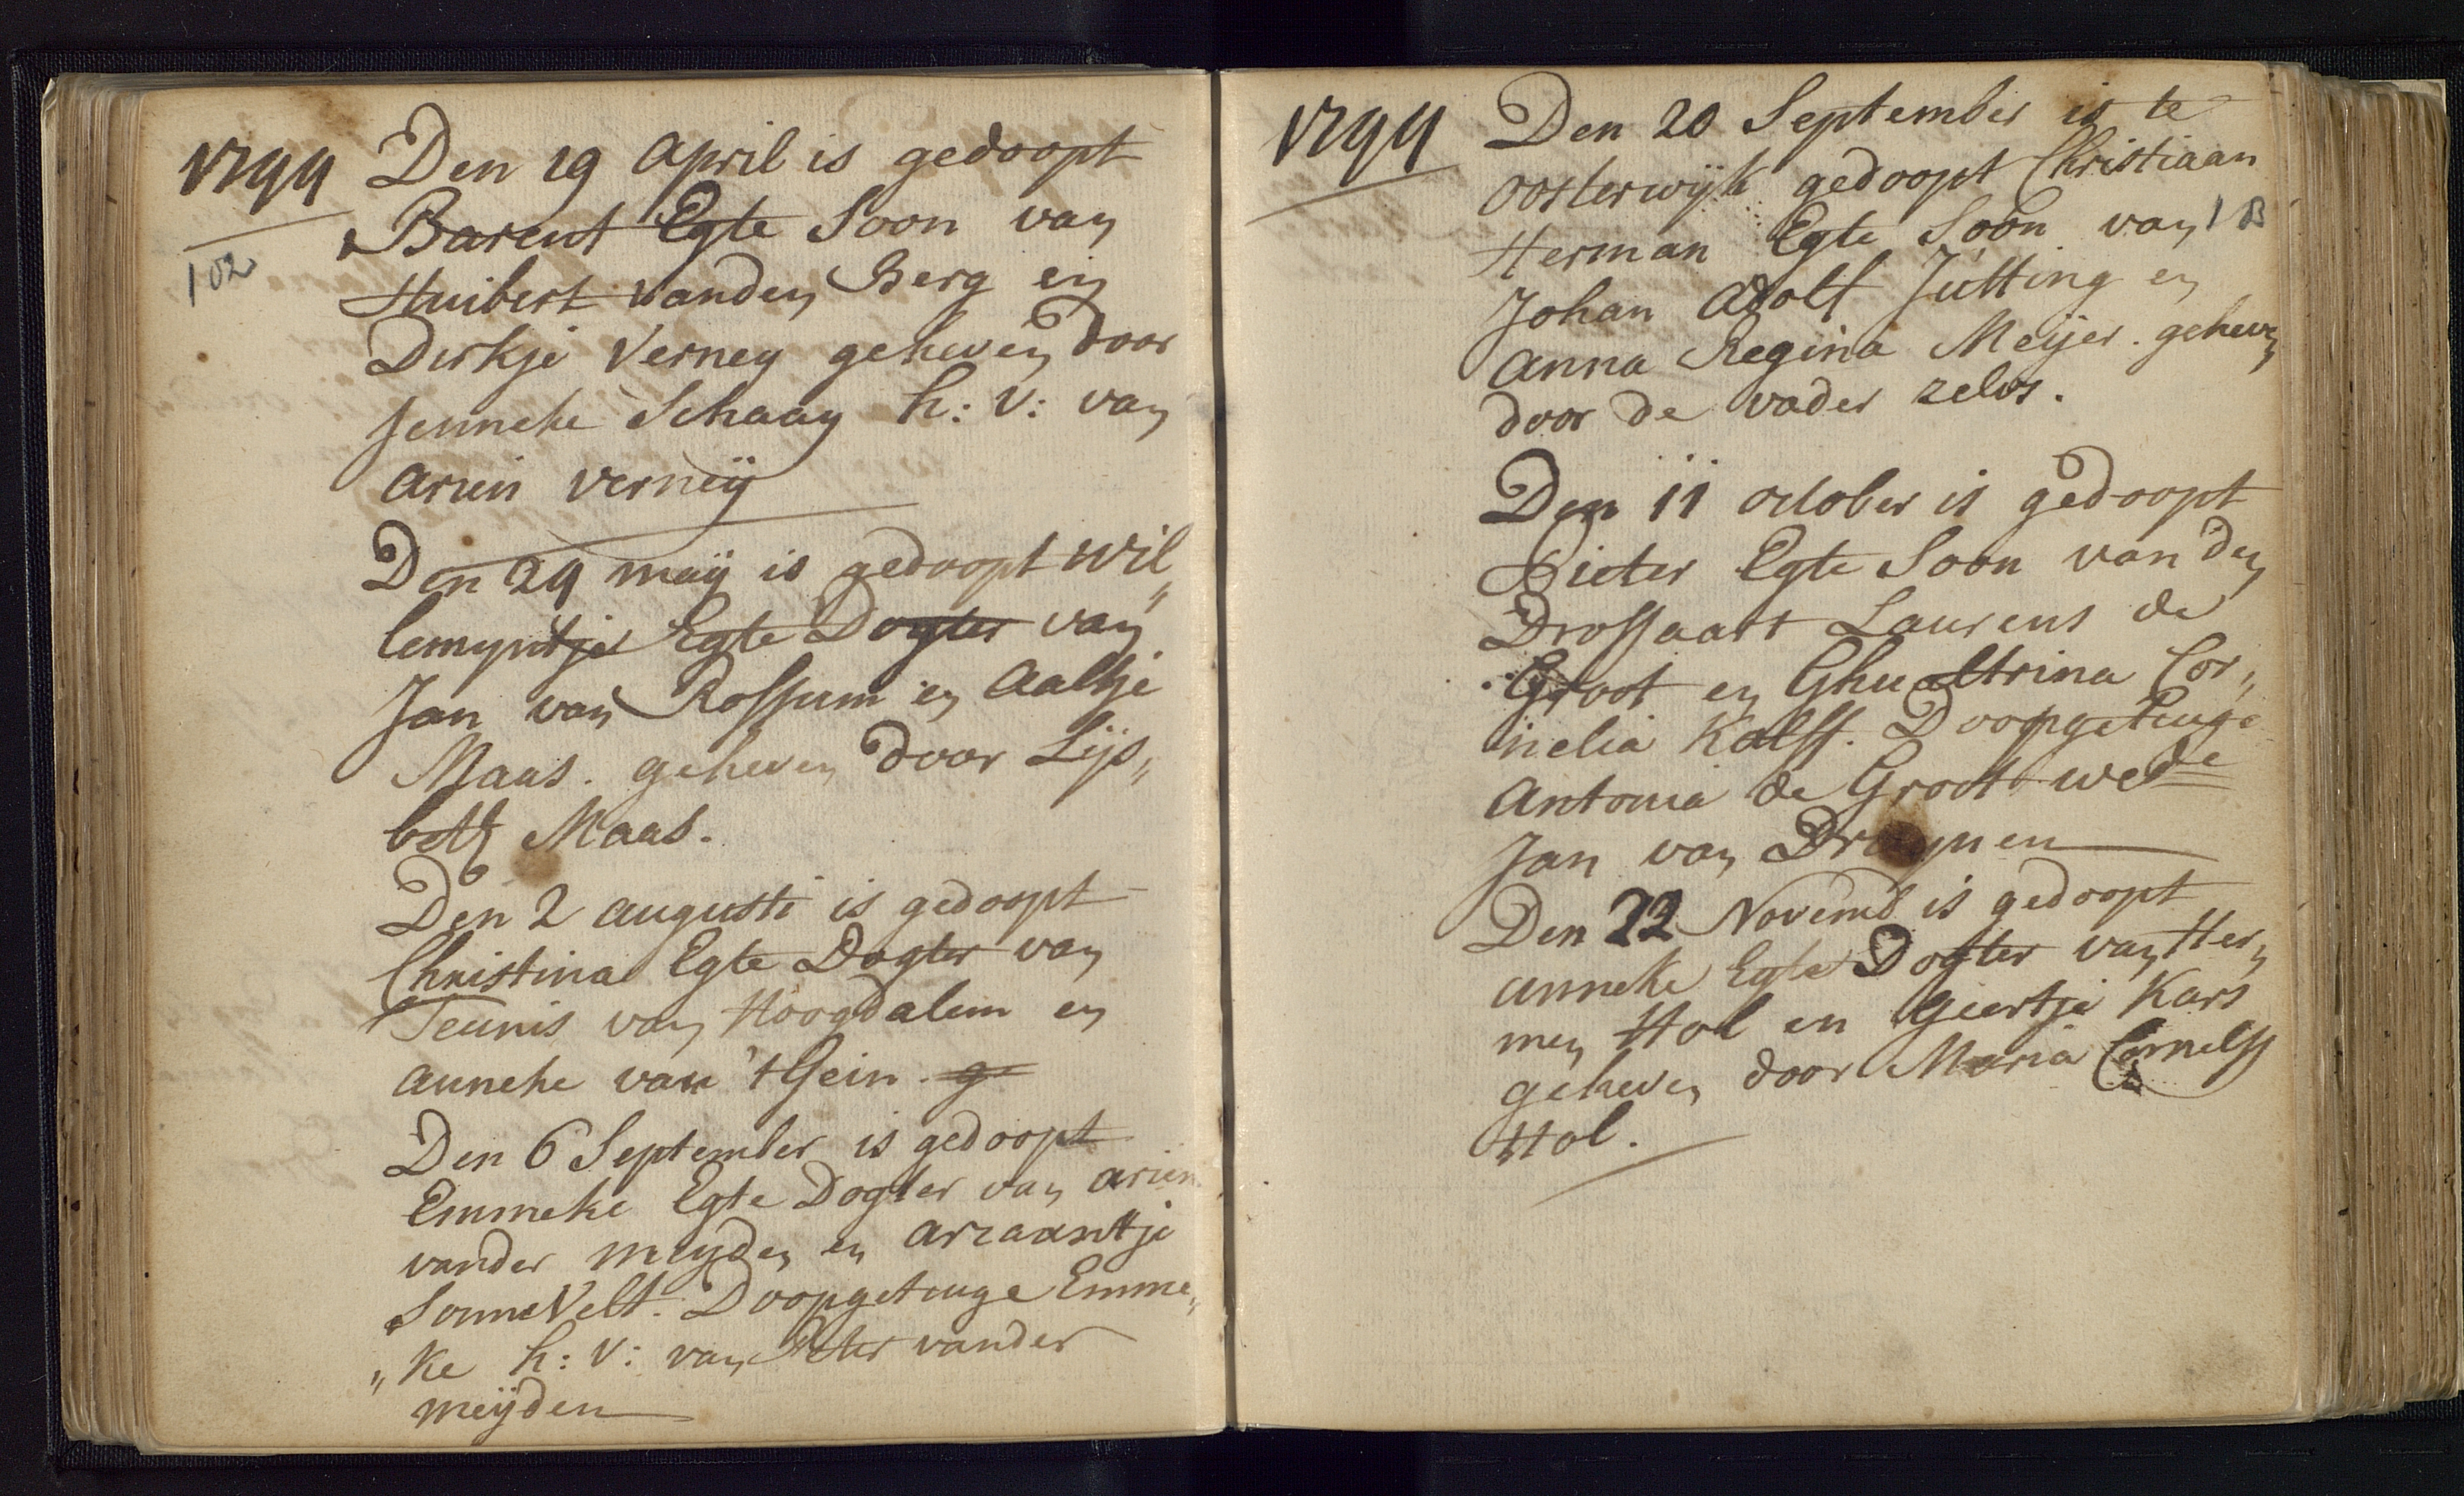 1744
102
Den 19 April is gedoopt
Barent Egte Soon van
Huibert vanden Berg en
Dirkje Verney geheven door
Jenneke Schaay h: v: van
Arien verneij
Den 24 maij is gedoopt Wil„
lemyntje Egte Dogter van
Jan van Rossum en Aaltje
Maas. geheven door Lijs„
beth Maas.
Den 2 augusti is gedoopt
Christina Egte Dogter van
Teunis van Hoogdalem en
anneke van 't Gein. ge
Den 6 September is gedoopt
Emmeke Egte Dogter van arien
vander meyden en ariaantje
SonneVelt. Doopgetuuge Emme„
„ke h: v: van Peter vander
meijden
1744
Den 20 September is te
oosterwijk gedoopt Christiaan
Herman Egte Soon van
Johan Adolf Jutting en
Anna Regina Meijer. geheven
door de vader zelvs.
Den 11 october is gedoopt
Pieter Egte Soon van den
Drossaart Laurens de
Groot en Ghualtrina Cor„
nelia Kalff. Doopgetuuge
Antonia de Groot wede
Jan van Druynen
Den 22 Novemb is gedoopt
anneke Egte Dogter van Her„
men Hol en Geertje Kars
geheven door Maria Cornelss
Hol.